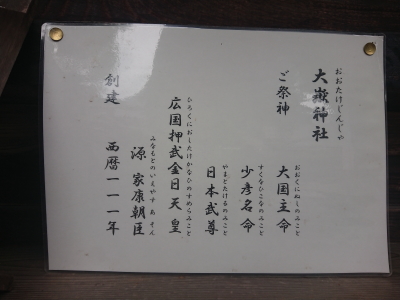 おおたけじんじゃ
大嶽神社
ご祭神
おおくにぬしのみこと
大国主命
すくなひこなのみこと
少彦名命
やまとたけるのみこと
日本武尊
ひろくにおしたけかなひのすめらみこと
広国押武金日天皇
みなもとのいえやすあそん
源家康朝臣
創建 西暦一一一年